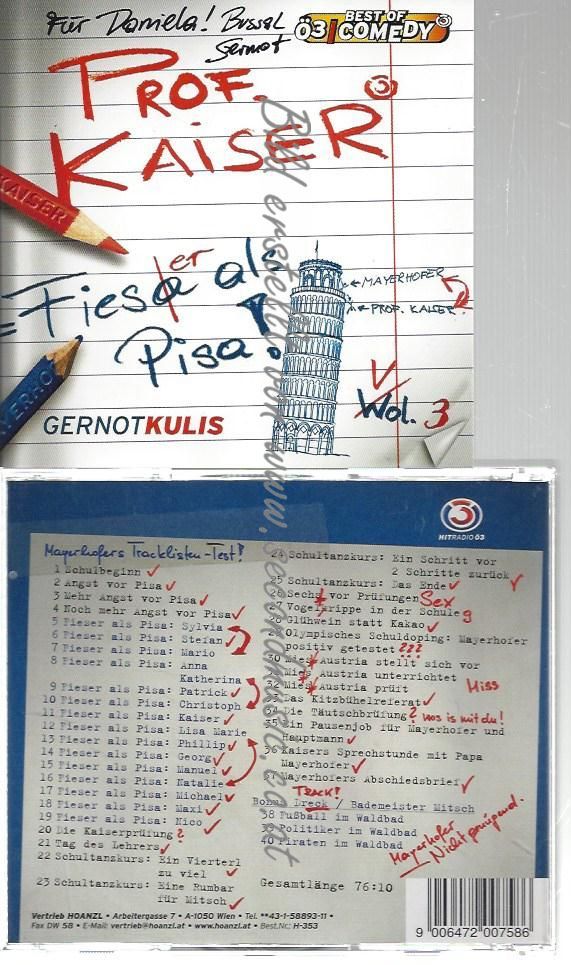 Für Daniela! Bussal
Gernot
BEST OF
Ö3 COMEDY 3
PROF.
KAISER
KAISER
= Fiesa er als
Pisa!
MAYERHOFER
PROF. KAISER
V
Wol. 3
GERNOTKULIS
HITRADIO Ö3
Mayerhofers Tracklisten-Test!
1 Schulbeginn
2 Angst vor Pisa
3 Mehr Angst vor Pisa
4 Noch mehr Angst vor Pisa
5 Fieser als Pisa: Sylvia
6 Fieser als Pisa: Stefan
7 Fieser als Pisa: Mario
8 Fieser als Pisa: Anna
Katherina
9 Fieser als Pisa: Patrick
10 Fieser als Pisa: Christoph
11 Fieser als Pisa: Kaiser
12 Fieser als Pisa: Lisa Marie
13 Fieser als Pisa: Phillip
14 Fieser als Pisa: Georg
15 Fieser als Pisa: Manuel
16 Fieser als Pisa: Natalie
17 Fieser als Pisa: Michael
18 Fieser als Pisa: Maxi
19 Fieser als Pisa: Nico
20 Die Kaiserprüfung ?
21 Tag des Lehrers
22 Schultanzkurs: Ein Vierterl
zu viel
23 Schultanzkurs: Eine Rumbar
für Mitsch
24 Schultanzkurs: Ein Schritt vor
2 Schritte zurück
25 Schultanzkurs: Das Ende
26 Sechs vor Prüfungen Sex
27 Vogelgrippe in der Schule g
28 Glühwein statt Kakao
29 Olympisches Schuldoping: Mayerhofer
positiv getestet ???
30 Mies Austria stellt sich vor
31 Mies Austria unterrichtet
32 Mies Austria prüft Miss
33 Das Kitzbühelreferat
34 Die Täutschbrüfung ? wos is mit du!
35 Ein Pausenjob für Mayerhofer und
Hauptmann
36 Kaisers Sprechstunde mit Papa
Mayerhofer
37 Mayerhofers Abschiedsbrief
TRACK!
Bonus Dreck / Bademeister Mitsch
38 Fußball im Waldbad
39 Politiker im Waldbad
40 Piraten im Waldbad
Mayerhofer
Nicht genügend.
Gesamtlänge 76:10
Vertrieb HOANZL • Arbeitergasse 7 • A-1050 Wien • Tel. **43-1-58893-11 •
Fax DW 58 • E-Mail: vertrieb@hoanzl.at • www.hoanzl.at • Best.Nr.: H-353
9 006472 007586
Bild erstellt von www.secondrec.at